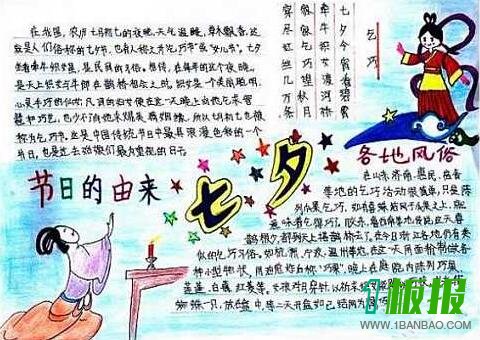 在我国，农历七月初七的夜晚，天气温暖，草木飘香，这
就是人们俗称的七夕节，也有人称之为"乞巧节"或"女儿节"。七夕
坐看牵牛织女星，是民间的习俗。相传，在每年的这个夜晚，
是天上织女与牛郎在鹊桥相会之时。织女是一个美丽聪明、
心灵手巧的仙女，凡间的妇女便在这一天晚上向她乞求智
慧和巧艺，也少不了向她求赐美满姻缘，所以七月初七也被
称为乞巧节。这是中国传统节日中最具浪漫色彩的一个
节日，也是过去姑娘们最为重视的日子。
乞巧
七夕今宵看碧霄
牵牛织女渡河桥
家家乞巧望秋月
穿尽红丝几万条
节日的由来
七夕
各地风俗
在山东济南、惠民、高青
等地的乞巧活动很简单，只是陈
列瓜果乞巧，如有喜蛛结网于瓜果之上，就
意味着乞得巧了。
似的乞巧习俗。
各种小型物状，用油煎炸后称"巧果"，晚上在庭院内陈列巧果、
莲蓬、白藕、红菱等。
蜘蛛一只，放在盒中，第二天开盒如已结网为得巧
1板报
WWW.1BANBAO.COM